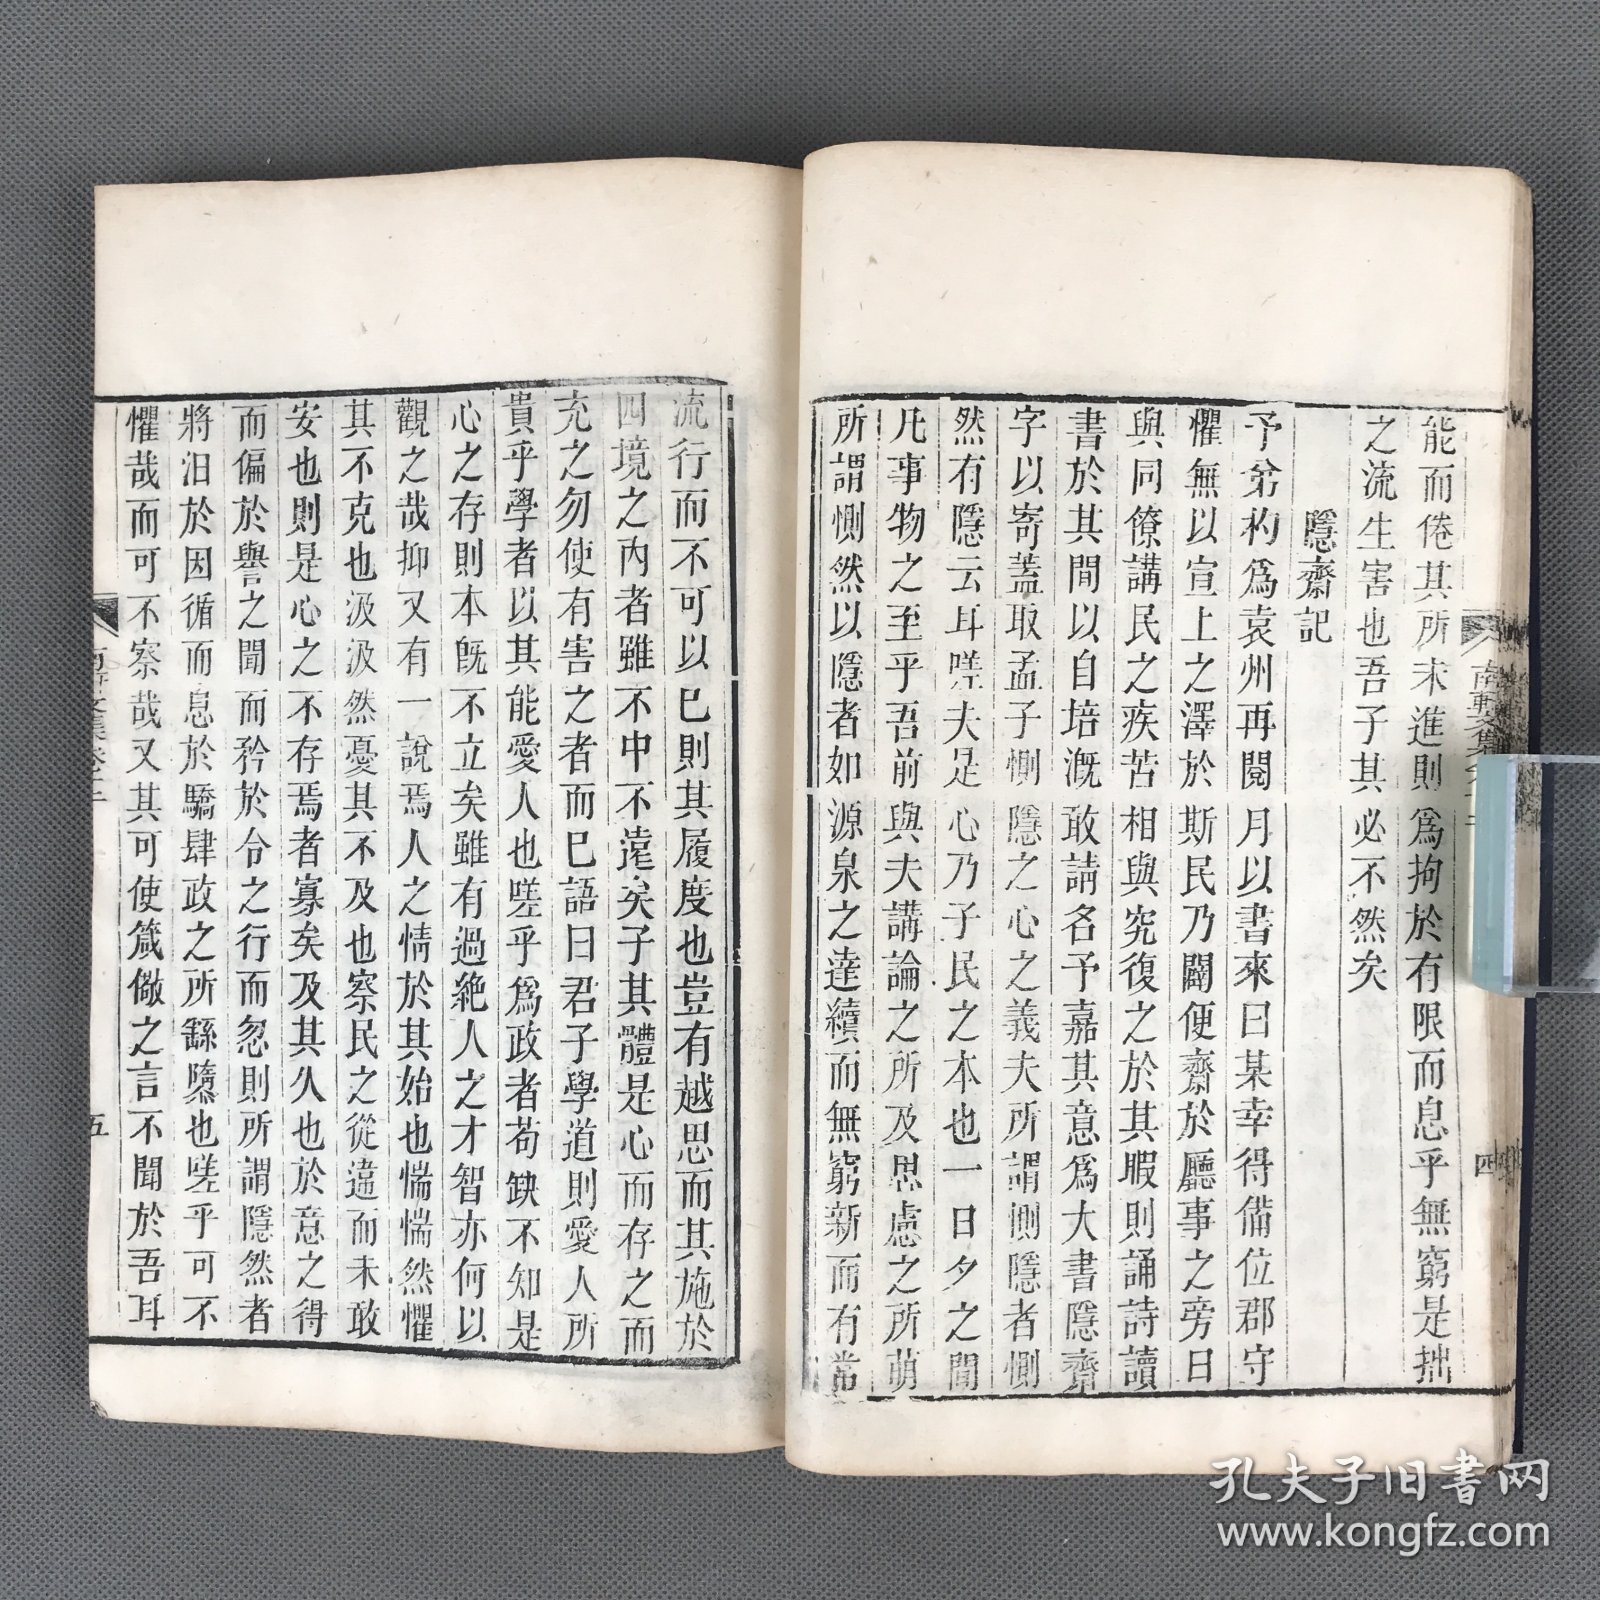 能而倦其所未進則爲拘於有限而息乎無窮是拙
之流生害也吾子其必不然矣
隱齋記
予弟杓爲袁州再閱月以書來曰某幸得備位郡守
懼無以宣上之澤於斯民乃闢便齋於廳事之旁日
與同僚講民之疾苦相與究復之於其暇則誦詩讀
書於其間以自培漑敢請名予嘉其意爲大書隱齋
字以寄蓋取孟子惻隱之心之義夫所謂惻隱者惻
然有隱云耳嗟夫是心乃子民之本也一日夕之間
凡事物之至乎吾前與夫講論之所及思慮之所萌
所謂惻然以隱者如源泉之達續而無窮新而有常
流行而不可以已則其履度也豈有越思而其施於
四境之內者雖不中不遠矣子其體是心而存之而
充之勿使有害之者而已語曰君子學道則愛人所
貴乎學者以其能愛人也嗟乎爲政者苟缺不知是
心之存則本旣不立矣雖有過絶人之才智亦何以
觀之哉抑又有一說焉人之情於其始也惴惴然懼
其不克也汲汲然憂其不及也察民之從違而未敢
安也則是心之不存焉者寡矣及其久也於意之得
而偏於譽之聞而矜於令之行而忽則所謂隱然者
將汨於因循而息於驕肆政之所繇隳也嗟乎可不
懼哉而可不察哉又其可使箴儆之言不聞於吾耳
南軒文集卷十二
四
五
孔夫子旧书网
www.kongfz.com